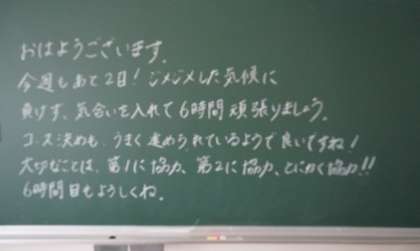 おはようございます。
今週もあと2日！ジメジメした気候に
負けず、気合いを入れて6時間頑張りましょう。
コース決めも、うまく進められているようで良いですね！
大切なことは、第1に協力、第2に協力、とにかく協力!!
6時間目もよろしくね。